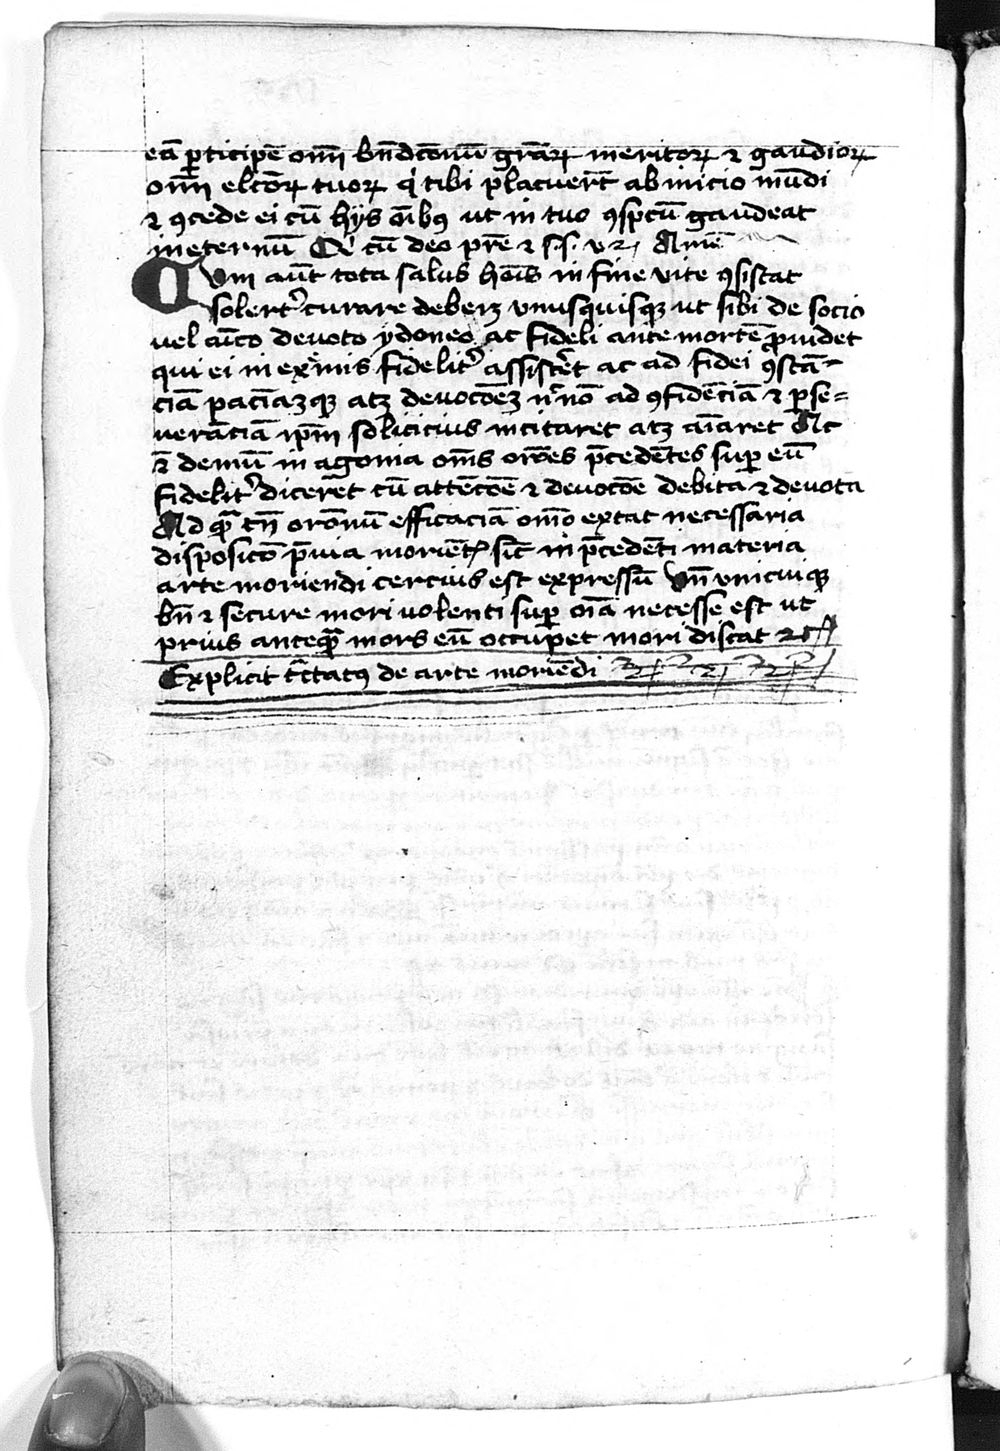 eā ꝑticipē om̄i bn̄dcōnū gr̄aꝝ meritoꝝ ⁊ gaudioꝝ
om̄i elc̄oꝝ tuoꝝ qͥ tibi placuer̄t ab inicio mūdi
⁊ ꝯcede ei cū hijs oībꝰ ut in tuo ꝯspc̄u gaudeat
in eternū Qͥ cū deo pr̄e ⁊ s̄. s̄. v ⁊ Amē
Cum aūt tota salus hoīs in fine vite ꝯsistat
solert̉ curare debeꝫ vnusquisqꝫ ut sibi de socio
vel aīco devoto ydoneo ac fideli ante mortē ꝓuidet
qui ei in exͥmis fidelit̉ assister̄t ac ad fidei ꝯstā=
ciā paciāꝫqꝫ atꝫ devocōeꝫ n̄ no ad ꝯfidēciā ⁊ ꝑse=
verāciā ip̄m solicicius incitaret atꝫ aīaret Ac
⁊̄ demū in agonia om̄s or̄ōes p̄cedētes suꝑ eū
fidelit̉ dicer̄et cū attēcōe ⁊ devocōe debita ⁊ devota
Ad qͣ tn̄ or̄onū efficaciā om̄o extat necessaria
disposicō p̄uia moriēt sic̄ in p̄cedēti materia
arte moriendi cercius est expressū Vn̄ vnicuiqꝫ
bn̄ ⁊ secure mori volenti suꝑ oīa necesse est ut
prius anteqͣ mors eū occupet mori discat ⁊c̄
Explicit tc̄tatꝰ de arte moriēdi ⁊c̄ ⁊c̄ ⁊c̄